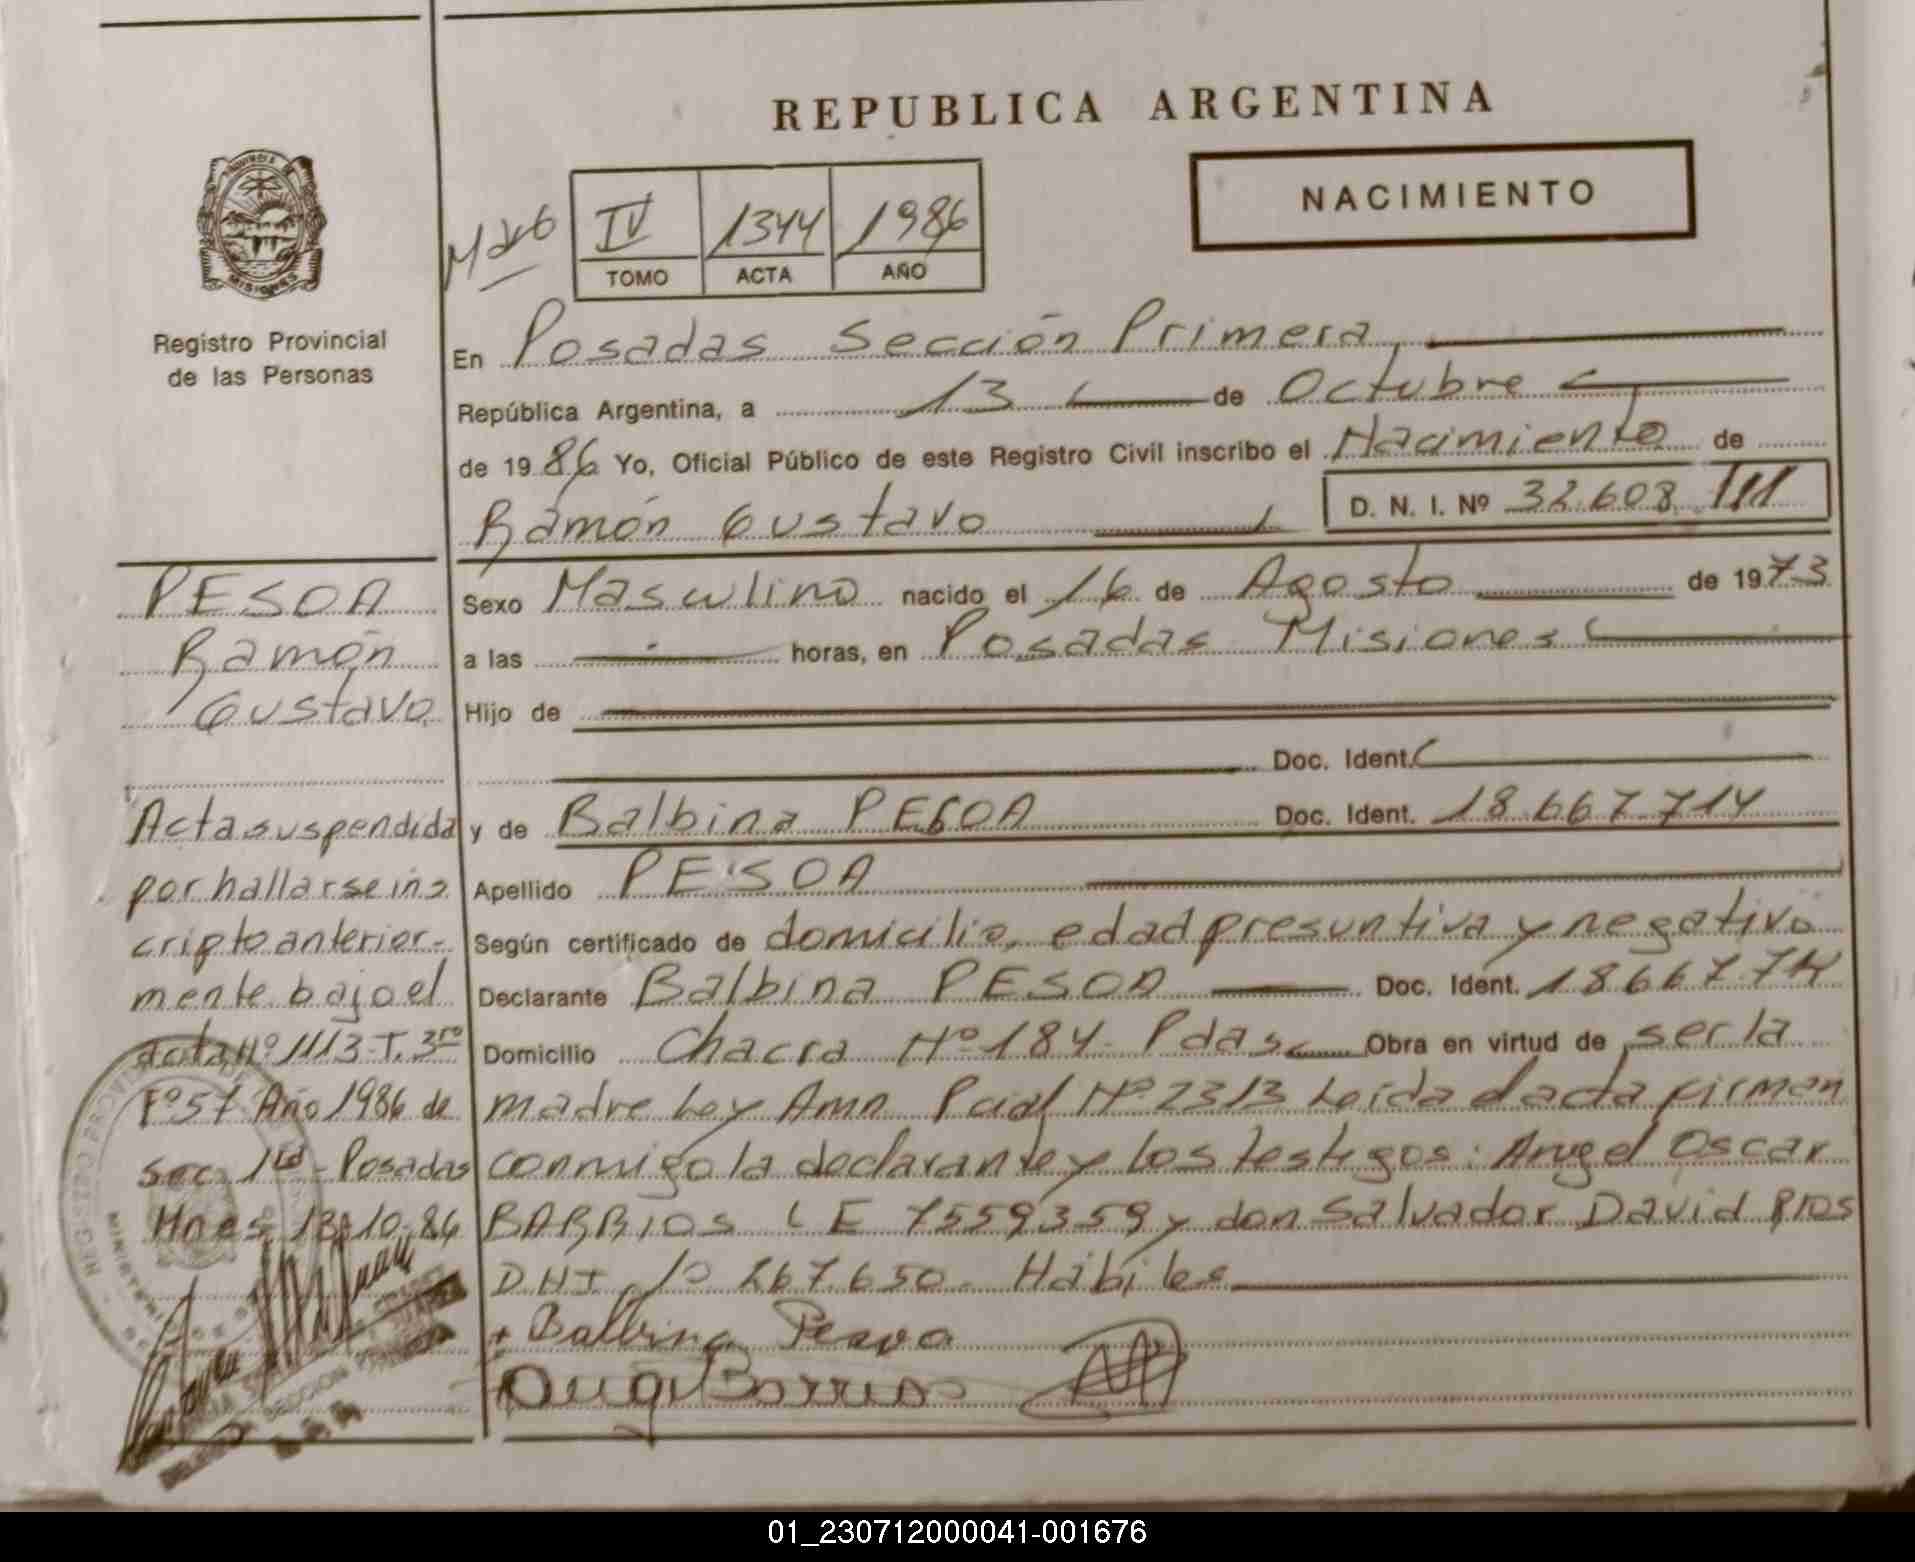 REPUBLICA ARGENTINA
NACIMIENTO
IV 1344 1986
TOMO ACTA AÑO
PROVINCIA DE
MISIONES
Registro Provincial
de las Personas
En Posadas Sección Primera
República Argentina, a 13 de Octubre
de 1986 Yo, Oficial Público de este Registro Civil inscribo el Nacimiento de
Ramón Gustavo D. N. I. Nº 32.608
Sexo Masculino nacido el 16 de Agosto de 1973
a las horas, en Posadas Misiones
Hijo de
Doc. Ident.
y de Balbina PESOA Doc. Ident. 18.667.714
Apellido PESOA
Según certificado de domicilio, edad presuntiva y negativo
Declarante Balbina PESOA Doc. Ident. 18667714
Domicilio Chacra Nº 184 Pdas Obra en virtud de ser la
madre Ley Nº 2313 Leída el acta firman
conmigo la declarante y los testigos: Angel Oscar
BARRIOS LE 7559359 y don Salvador David RIOS
DNI 267.650. Hábiles
Balbina Pesoa
Angel Barrios
PESOA
Ramón
Gustavo
Acta suspendida
por hallarse ins
cripto anterior-
mente bajo el
acta Nº 1113-T. 3ro
Fº 57 Año 1986 de
Sec. 1ra - Posadas
Mnes 13-10-86